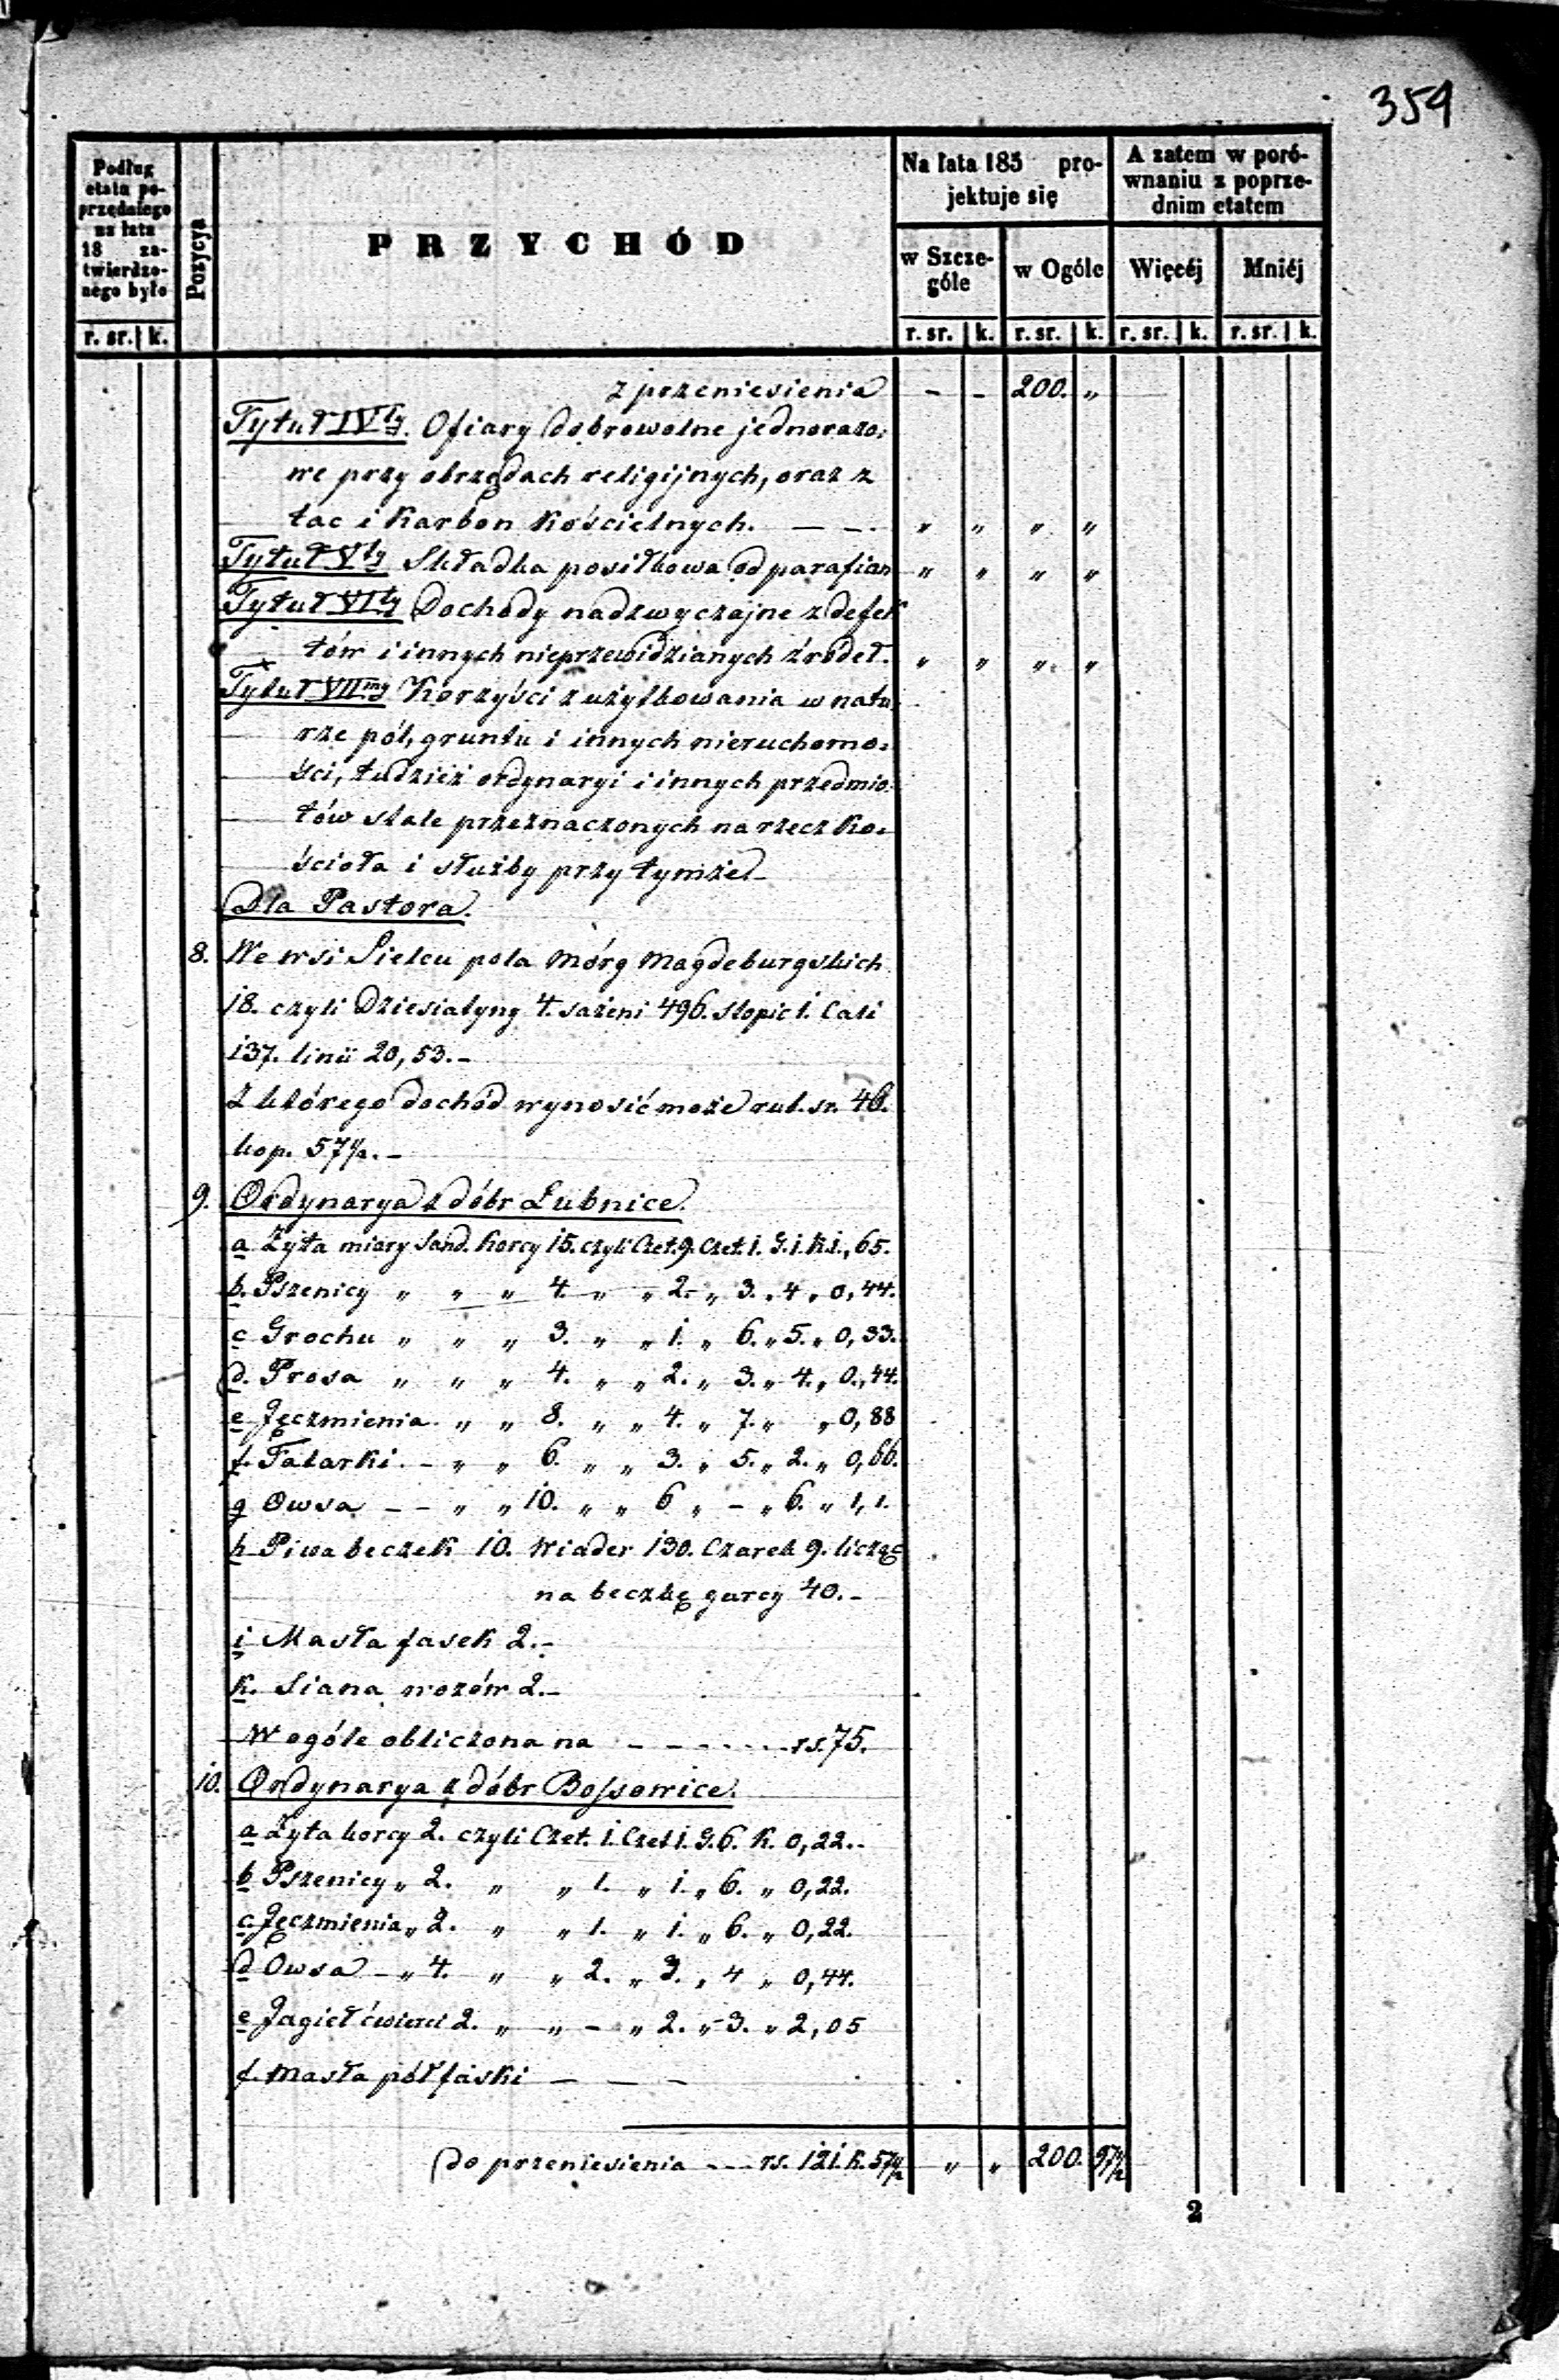 359
Podług
etatu po-
przedniego
na lata
18 za-
twierdzo-
nego było
Pozycya
PRZYCHÓD
Na lata 185 pro-
jektuje się
A zatem w poró-
wnaniu z poprze-
dnim etatem
w Szcze-
góle
w Ogóle
Więcéj
Mniéj
r. sr. k.
r. sr. k. r. sr. k. r. sr. k. r. sr. k.
z przeniesienia - - 200. „
Tytuł IVty. Ofiary dobrowolne jednorazo-
we przy obrzędach religijnych, oraz z
tac i Karbon Kościelnych. — — „ „ „ „
Tytuł Vty Składka posiłkowa od parafian „ „ „ „
Tytuł VIty Dochody nadzwyczajne z defek
tów i innych nieprzewidzianych źródeł. „ „ „ „
Tytuł VIImy Korzyści z użytkowania w natu
rze pól, gruntu i innych nieruchomo-
ści, tudzież ordynaryi i innych przedmio-
tów stale przeznaczonych na rzecz Ko-
ścioła i służby przy tymże
Dla Pastora.
8. We wsi Sielcu pola Mórg Magdeburgskich
18. czyli Dziesiatyny 4. sażeni 496. stopic 1. Cali
137. linii 20,53.-
z którego dochód wynosić może rub. sr. 46.
kop. 57½.-
9. Ordynarya z dóbr Łubnice.
a Żyta miary Sand. Korcy 15. czyli Czet. 9. Czet. 1. G. 1. K. 1.,65.
b. Pszenicy „ „ „ 4. „ „ 2. „ 3. „ 4 „ 0,44.
c Grochu „ „ „ 3. „ „ 1. „ 6. „ 5. „ 0,33.
d. Prosa „ „ „ 4. „ „ 2. „ 3. „ 4. „ 0,44.
e Jęczmienia. „ „ 8. „ „ 4. „ 7. „ „ 0,88
f. Tatarki. - „ „ 6. „ „ 3. „ 5. „ 2. „ 0,66.
g Owsa - - „ „ 10. „ „ 6 „ - „ 6. „ 1,1.
h Piwa beczek 10. Wiader 130. Czarek 9. licząc
na beczkę garcy 40.-
i Masła fasek 2.-
k. Siana wozów 2.-
W ogóle obliczona na - - - - - rs. 75.
10. Ordynarya z dóbr Bossowice.
a Żyta korcy 2. czyli Czet. 1. Czet 1. G. 6. K. 0,22.-
b Pszenicy „ 2. „ „ 1. „ 1. „ 6. „ 0,22.
c Jęczmienia „ 2. „ „ 1. „ 1. „ 6. „ 0,22.
d Owsa - „ 4. „ „ 2. „ 3. „ 4 „ 0,44.
e Jagieł ćwierci 2. „ „ - „ 2. „ 3. „ 2,05
f. Masła pół faski — — -
do przeniesienia - - - rs. 121. K. 57½ „ „ 200. 97½
2